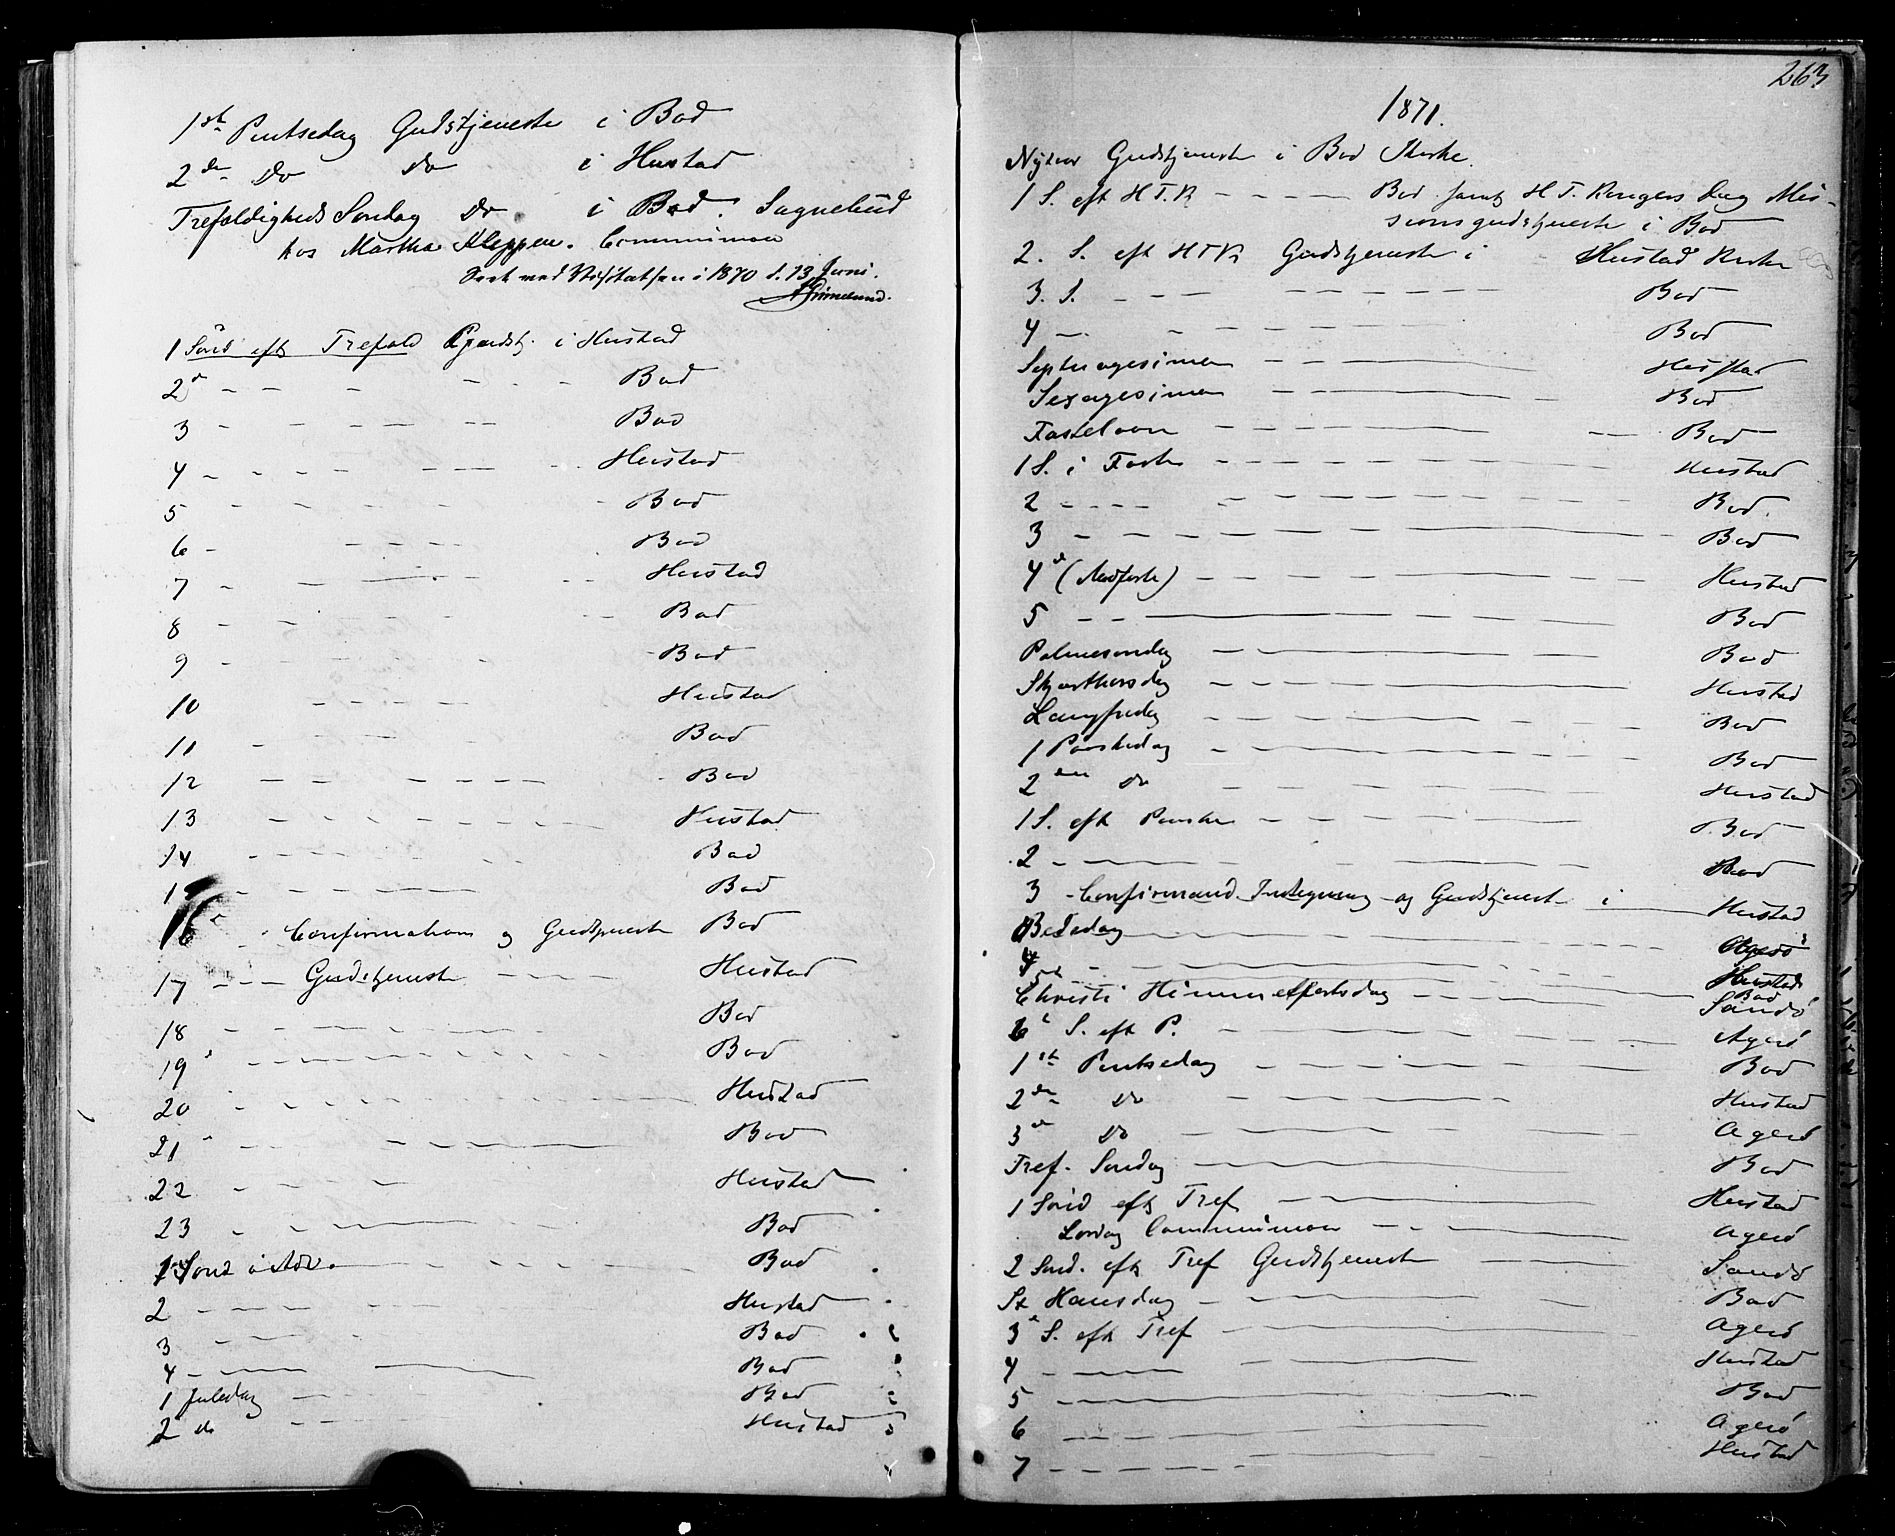 1ste Pintsedag Gudstjeneste i Bod
2den Do Do i Hustad
Trefoldigheds Søndag Do i Bod. Sognebud
hos Martha Kleppen. Communion
Seet ved Visitatsen i 1870 d. 13 Juni.
Grimelund.
1 Sønd eft Trefold Gudstj. i Hustad
2d - - - - - - Bod
3 - - - - - - Bod
4 - - - - - - Hustad
5 - - - - - Bod
6 - - - - - Bod
7 - - - - - Hustad
8 - - - - - Bod
9 - - - - Bod
10 - - - - Hustad
11 - - - - Bod
12 - - - - - Bod
13 - - - - - Hustad
14 - - - - - Bod
15 - - - - - Bod
16 Confirmation og Gudstjeneste Bod
17 - - - Gudstjeneste - - - - Hustad
18 - - - - - Bod
19 - - - - - Bod
20 - - - - - Hustad
21 - - - - - Bod
22 - - - - - Hustad
23 - - - - - Bod
1 Sønd i Adv. - - - - Bod
2 - - - - Hustad
3 - - - - Bod
4 - - - - Bod
1 Juledag - - - Bod
2 do - - - Hustad
263
1871.
Nytaar Gudstjeneste i Bod Kirke.
1 S. eft H T. K - - - - Bod samt H T. Kongers Dag Mis-
sionsgudstjeneste i Bod
2. S. eft H T K Gudstjeneste i - Hustad Kirke
3. S. - - - - - - Bod
4 - - - - - - Bod
Septuagesima - - - - Hustad
Sexagesima - - - - Bod
Fastelavn - - - - Bod
1 S. i Faste - - - - Hustad
2 - - - - - - Bod.
3 - - - - - - Bod
4d (Midfaste) - - - - Hustad
5 - - - - Bod
Palmesøndag - - - - Bod
Skjærthorsdag - - - - Hustad
Langfredag - - - - Bod
1 Paaskedag - - - - Bod
2den do - - - - Hustad
1 S. eft Paaske - - - - Bod
2 - - - - Bod
3 - Confirmand Indtegning og Gudstjeneste i Hustad
Bededag - - - - Agerø
4 - - - - Hustad
5te - - - - Bod
Christi Himmelfartsdag - - - - Sandø
6te S. eft P. - - - - Agerø
1ste Pintsedag - - - - Bod
2den do - - - - Hustad
3d do - - - - Agerø
Tref. Søndag - - - - Bod
1 Sønd eft Tref - - - - Hustad
Lørdag Communion - - - Agerø
2 Sønd. eft Tref Gudstjeneste - - Sandø
St Hansdag - - - - Bod
3d S. eft Tref - - - - Agerø
4 - - - - Hustad
5 - - - - Bod
6 - - - - Agerø
7 - - - - Hustad